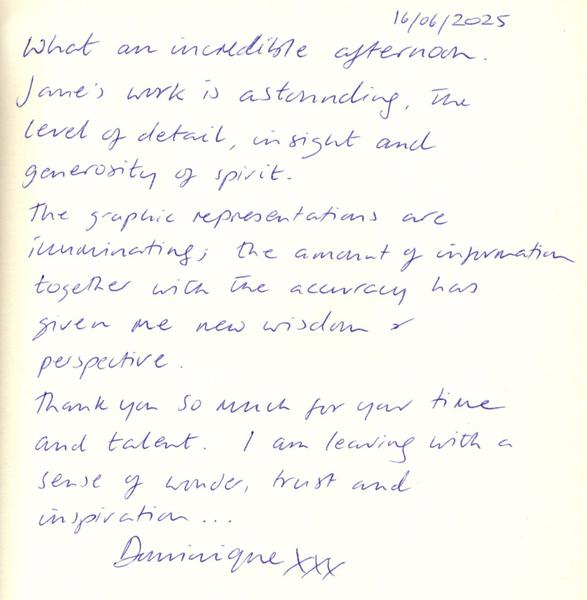 16/06/2025
What an incredible afternoon.
Jane's work is astounding, the
level of detail, insight and
generosity of spirit.
The graphic representations are
illuminating; the amount of information
together with the accuracy has
given me new wisdom &
perspective.
Thank you so much for your time
and talent. I am leaving with a
sense of wonder, trust and
inspiration...
Dominique xxx